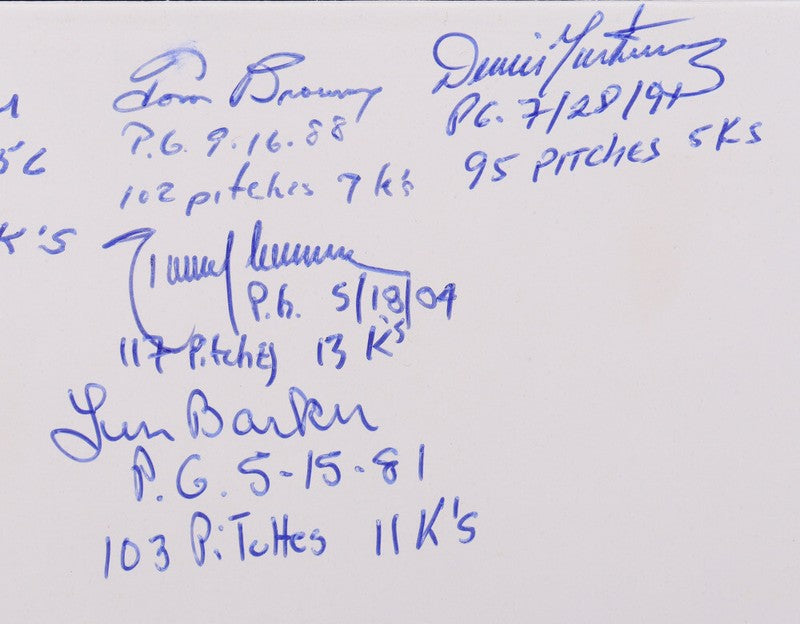 56
K'S
Tom Browning
P.G. 9.16.88
102 pitches 7 k's
Dennis Martinez
P.G. 7/28/91
95 PITCHES 5Ks
P.G. 5/18/04
117 Pitches 13 K's
Len Barker
P.G. 5-15-81
103 PiTches 11 K's